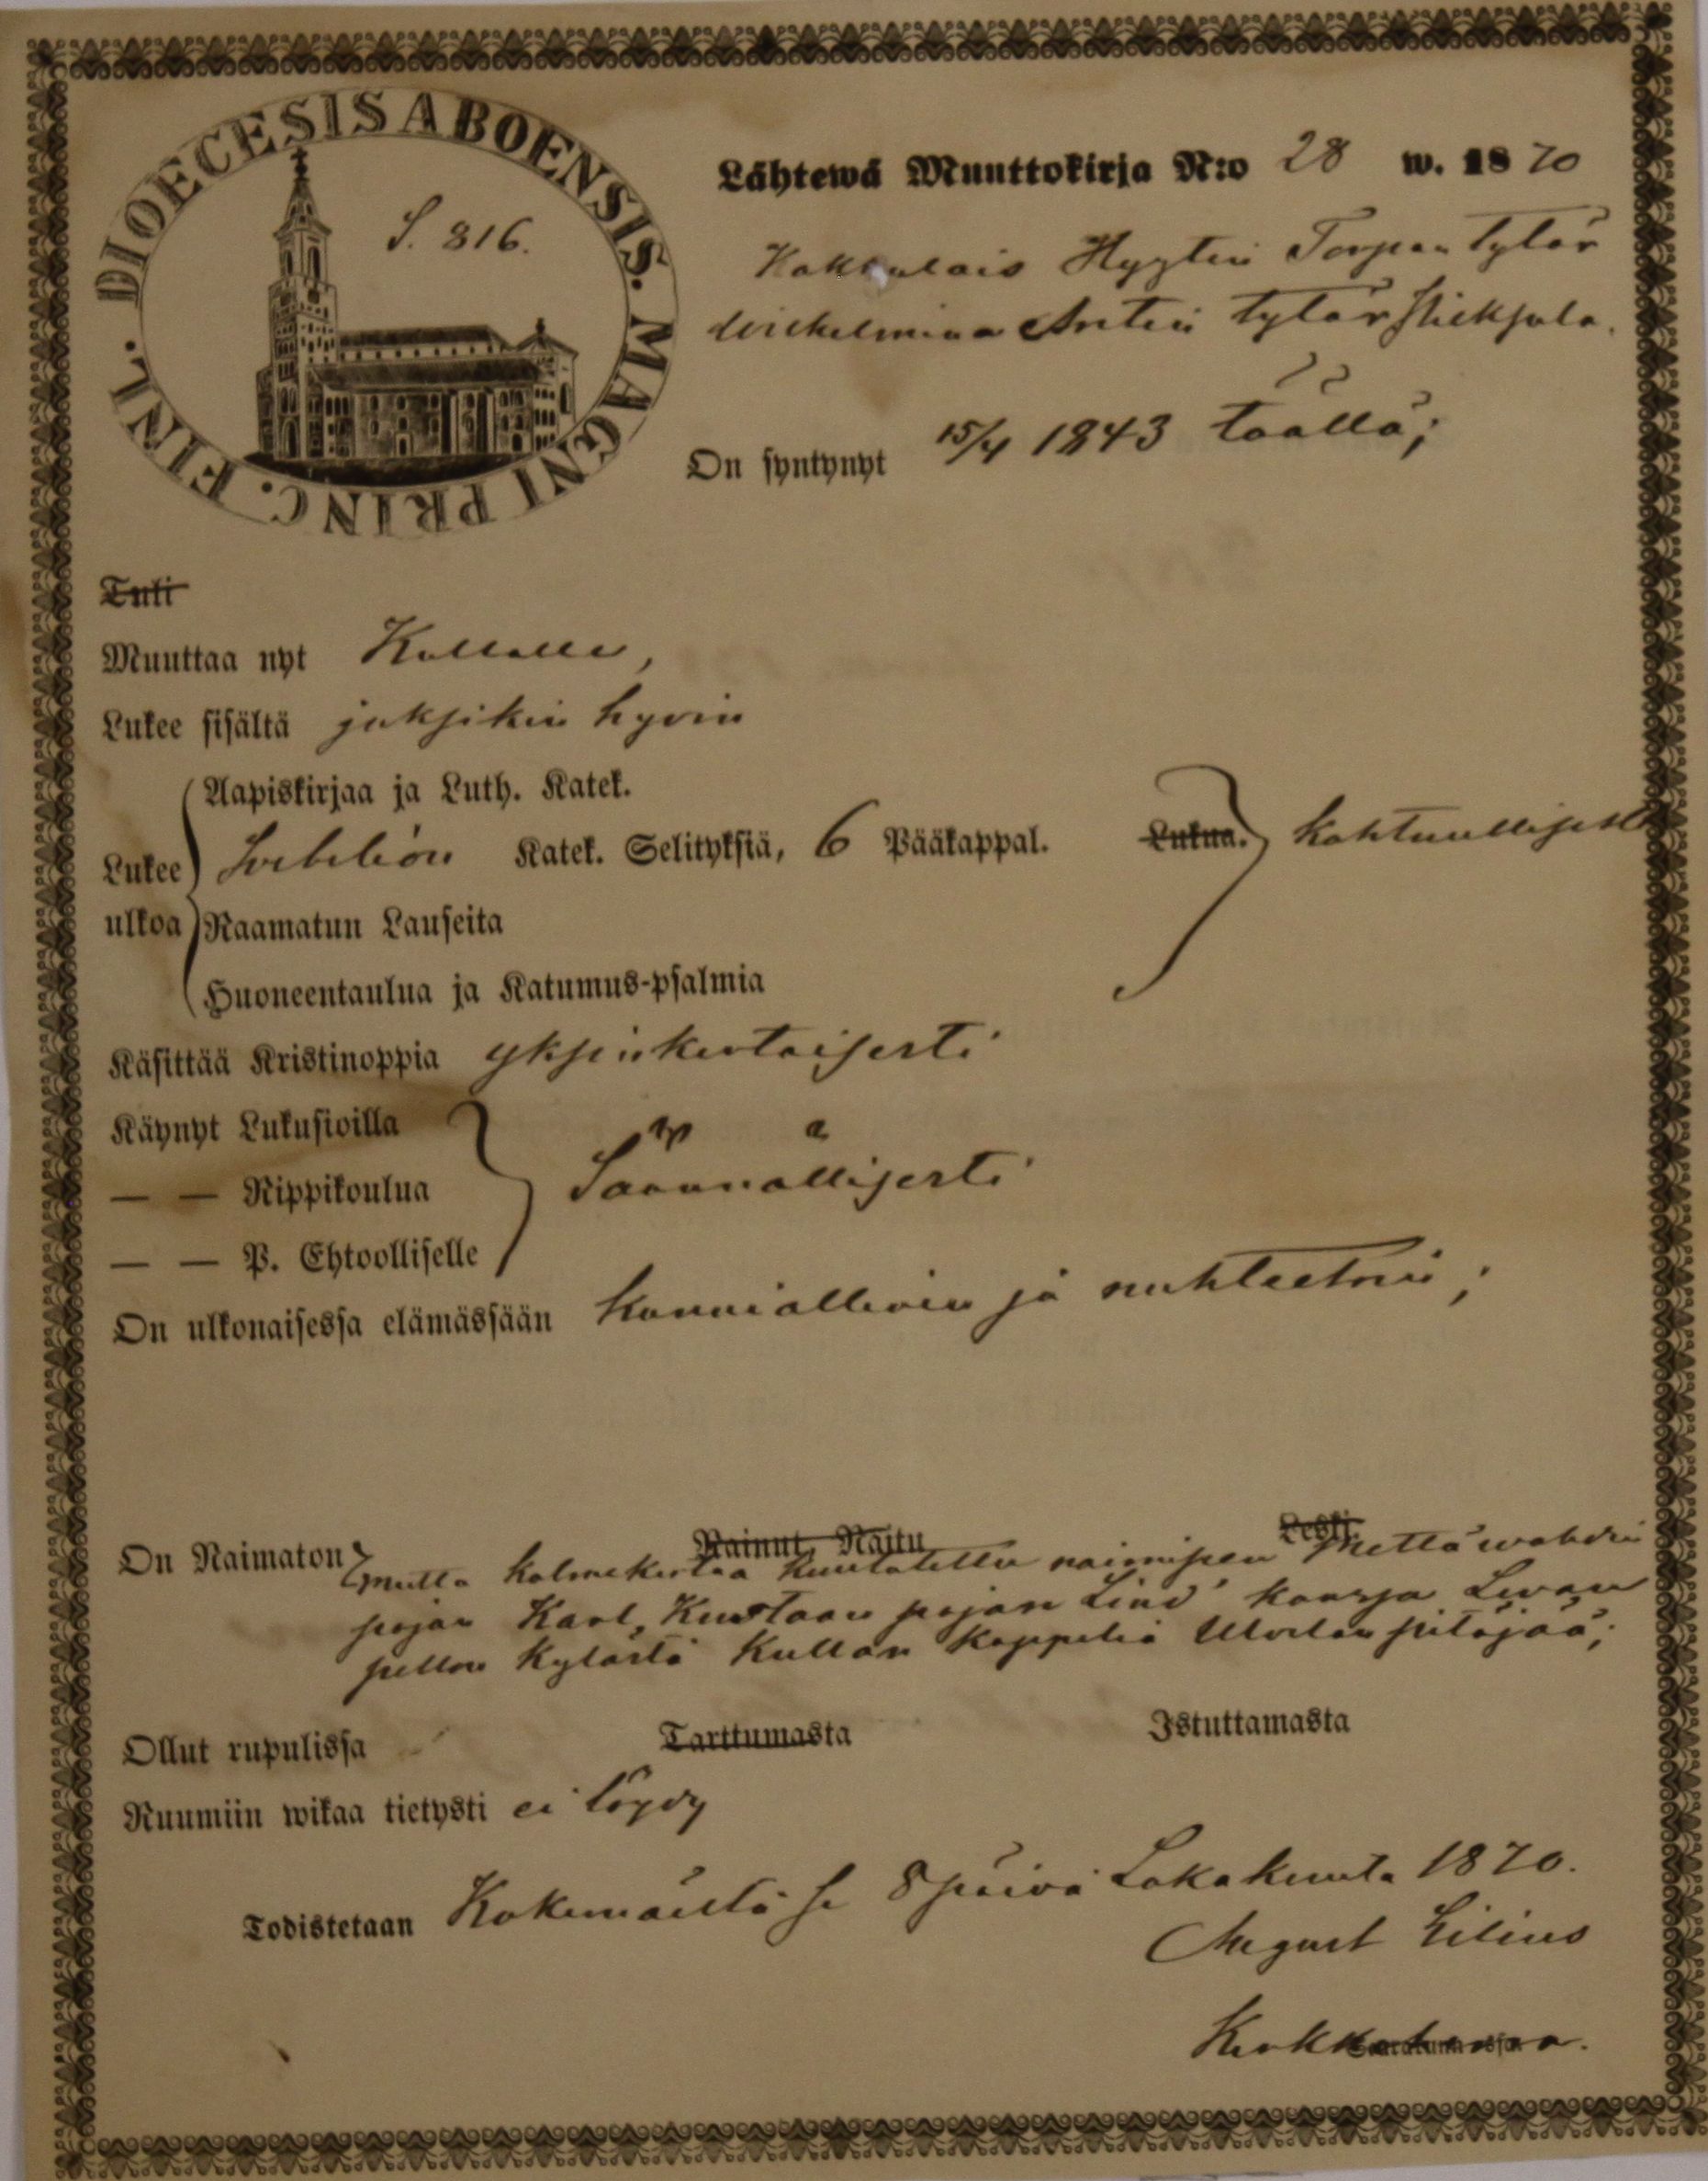 DIOECESIS ABOENSIS. MAGNI PRINC. FINL.
S. 816.
Lähtewä Muuttokirja N:o 28 w. 1870
Hyytin Torpan tytär
Wilhelmina Antin tytär
On syntynyt 15/4 1843 täällä;
Tuli
Muuttaa nyt Kullalle,
Lukee sisältä juksikin hyvin
Aapiskirjaa ja Luth. Katek.
Lukee Katek. Selityksiä, 6 Pääkappal. Lukua. kohtuullisesti
ulkoa Raamatun Lauseita
Huoneentaulua ja Katumus-psalmia
Käsittää Kristinoppia yksinkertaisesti
Käynyt Lukusioilla
— — Rippikoulua Säännällisesti
— — P. Ehtoolliselle
On ulkonaisessa elämässään kunniallinen ja nuhteetoin;
On Naimaton Nainut, Naitu Leski.
mutta kolmekertaa kuulutettu naimiseen Mettäwahdin
pojan Karl Kustaan pojan Lind kanssa Levan
pellon kylästä Kullan kappelia Ulvilan pitäjää;
Ollut rupulissa Tarttumasta Istuttamasta
Ruumiin wikaa tietysti ei löydy
Todistetaan Kokemäellä se 8 päivä Lokakuuta 1870.
August Lilius
Kirkkoherra.